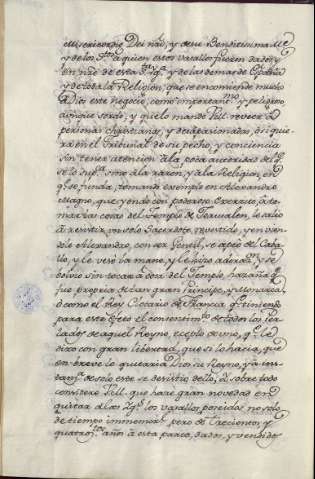 Misericordia Dei não, y de su Benditissima Me
y de los S.tos a quien estos vasallos fueron dados, y
en não de esta S.ta Yg.a y de las demas de España
y de toda la Religion, que se encomiende mucho
a Dios este negocio, como important.mo y peligroso
aunque sordo, y que lo mande V.ll. rever a
personas christianas, y desapasionadas, ò siquie
ra en el Tribunal de su pecho, y conciencia
sin tener atencion à la poca autoridad del q.e
se lo sup.ca sino à la razon, y à la Religion, en
q.e se funda, tomando exemplo en Alexandro
Magno, que yendo con poderoso Exercito, à to
mar las cosas del Templo de Jerusalen, le salio
à resistir un solo Sacerdote, revestido, y en vien
dole Alexandro, con ser Gentil, se apeò del Cava
llo, y le vesò la mano, y le hizo y se
bolvio sin tocar à cosa del Templo, hazaña q.e
fue propria de tan gran Principe, y Monarca
o como el Rey Clotario de Francia q.e teniendo
para este efecto el consentim.to de todos los Pre
lados de aquel Reyno, excepto de uno, q.e le
dixo con gran libertad, que si lo hacia, que
en breve le quitaria Dios su Reyno, y à ins
tan.a de solo este se desistiò dello, y sobre todo
considere V.ll. que hace gran novedad en
quitar à las Yg.as los vasallos poseidos no solo
de tiempo inmemor.l pero de trecientos y
quatroc.tos años à esta parte, dados, y vendidos